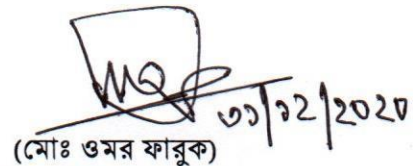 ৩১/১২/২০২০
(মোঃ ওমর ফারুক)